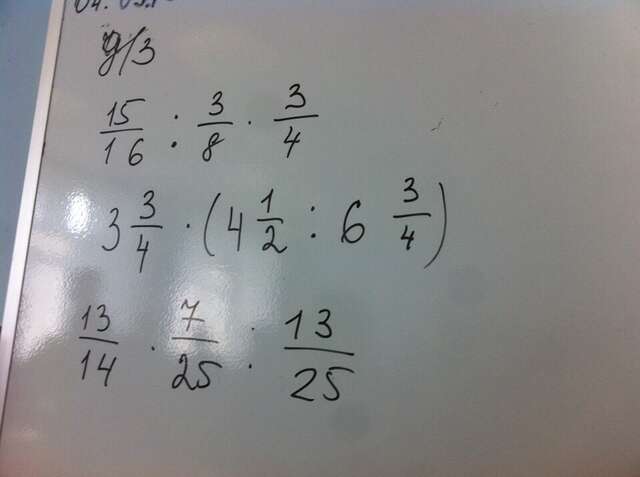 д/з
15/16 : 3/8 · 3/4
3 3/4 · (4 1/2 : 6 3/4)
13/14 · 7/25 : 13/25